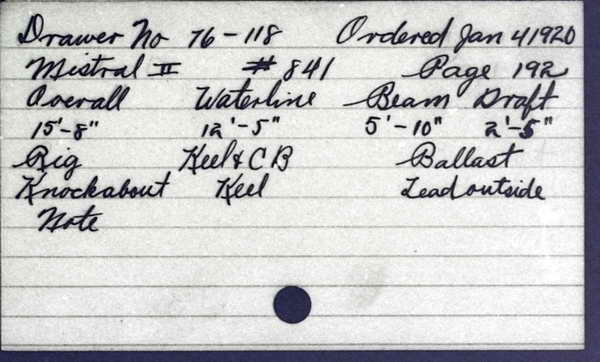 Drawer No 76-118 Ordered Jan 4 1920
Mistral II # 841 Page 192
Overall Waterline Beam Draft
15'-8" 12'-5" 5'-10" 2'-5"
Rig Keel & C B Ballast
Knockabout Keel Lead outside
Note